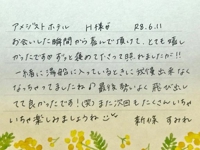 アメジストホテル H様 R8.6.11
お会いした瞬間から喜んで頂けて、とても嬉し
かったですずっと褒めて下さって照れましたが!!
一緒に湯船に入っているときに我慢出来なく
なっちゃってましたね♪最後勢いよく飛び出し
てて良かったです!(笑)また次回もたくさんいちゃ
いちゃ楽しみましょうね
新條 すみれ